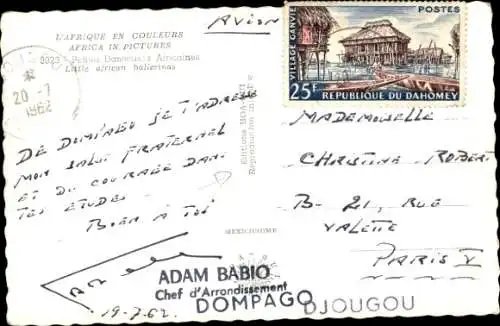 Avion
L'AFRIQUE EN COULEURS
AFRICA IN PICTURES
3023 - Petites Danseuses Africaines
Little african ballerinas
20 - 7
1962
DE DOMPAGO JE T'ADRESSE
MON SALUT FRATERNEL
ET DU COURAGE DANS
TES ETUDES.
BIEN A TOI
19.7.62
ADAM BABIO
Chef d'Arrondissement
DOMPAGO
DJOUGOU
Editions
MEXICHROME
VILLAGE GANVIE
POSTES
25F
REPUBLIQUE DU DAHOMEY
MADEMOISELLE
CHRISTINE ROBERT
B - 21, RUE
VALETTE
PARIS V